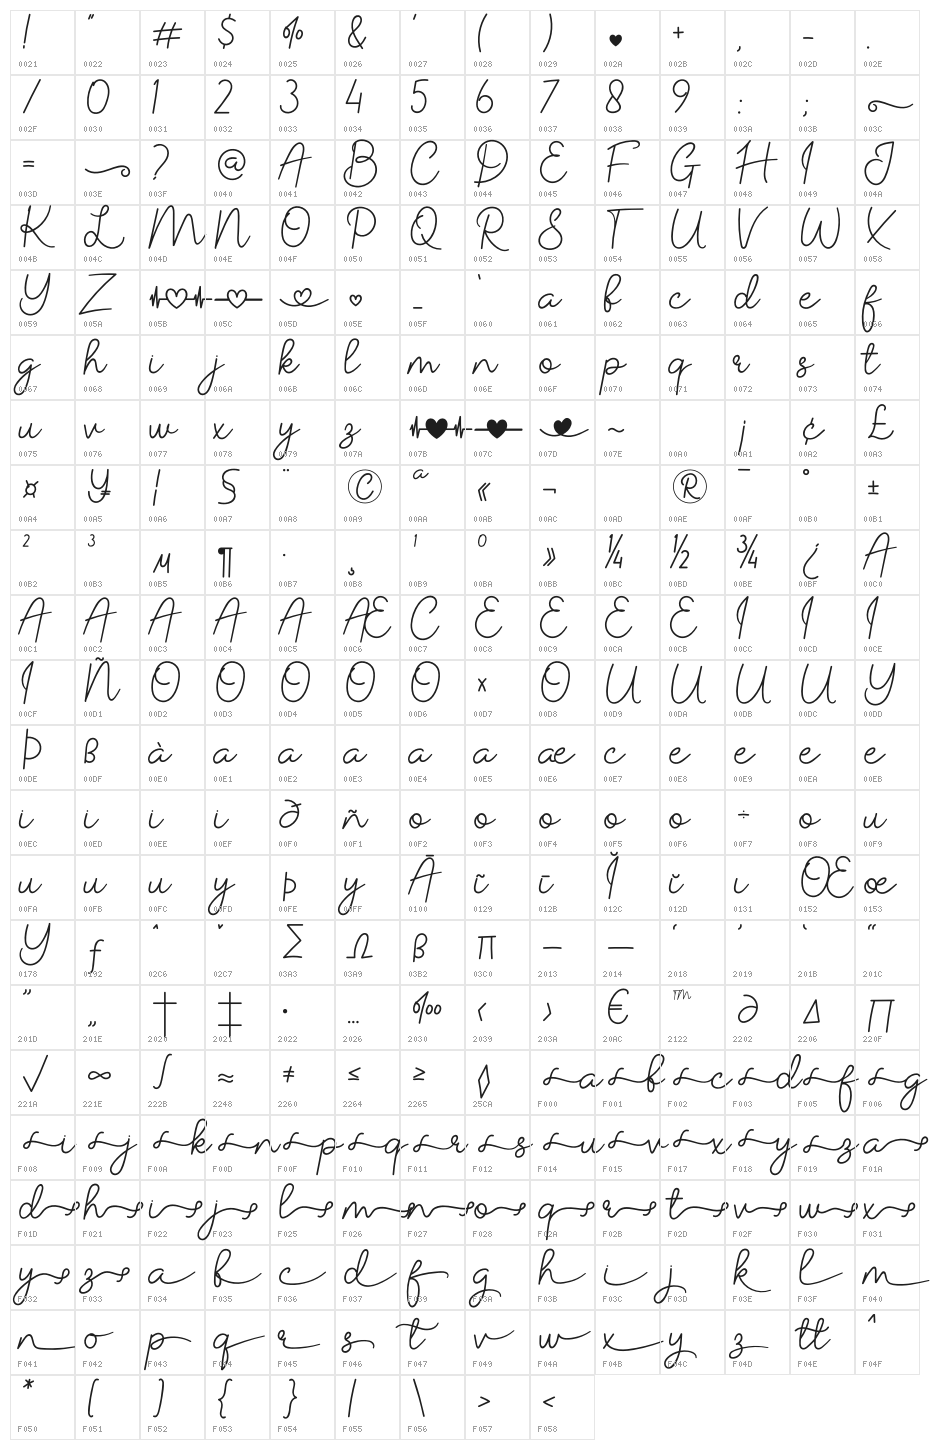 ! " # $ % & ' ( ) ♥ + , - .
0021 0022 0023 0024 0025 0026 0027 0028 0029 002A 002B 002C 002D 002E
/ 0 1 2 3 4 5 6 7 8 9 : ;
002F 0030 0031 0032 0033 0034 0035 0036 0037 0038 0039 003A 003B 003C
= ? @ A B C D E F G H I J
003D 003E 003F 0040 0041 0042 0043 0044 0045 0046 0047 0048 0049 004A
K L M N O P Q R S T U V W X
004B 004C 004D 004E 004F 0050 0051 0052 0053 0054 0055 0056 0057 0058
Y Z ♡ ♡ ♡ ♡ _ ` a b c d e f
0059 005A 005B 005C 005D 005E 005F 0060 0061 0062 0063 0064 0065 0066
g h i j k l m n o p q r s t
0067 0068 0069 006A 006B 006C 006D 006E 006F 0070 0071 0072 0073 0074
u v w x y z ♥ ♥ ♥ ~ ¡ ¢ £
0075 0076 0077 0078 0079 007A 007B 007C 007D 007E 00A0 00A1 00A2 00A3
¤ ¥ ¦ § ¨ © ª « ¬ ® ¯ ° ±
00A4 00A5 00A6 00A7 00A8 00A9 00AA 00AB 00AC 00AD 00AE 00AF 00B0 00B1
² ³ µ ¶ · ¸ ¹ º » ¼ ½ ¾ ¿ A
00B2 00B3 00B5 00B6 00B7 00B8 00B9 00BA 00BB 00BC 00BD 00BE 00BF 00C0
A A A A A Æ C E E E E I I I
00C1 00C2 00C3 00C4 00C5 00C6 00C7 00C8 00C9 00CA 00CB 00CC 00CD 00CE
I Ñ O O O O O × O U U U U Y
00CF 00D1 00D2 00D3 00D4 00D5 00D6 00D7 00D8 00D9 00DA 00DB 00DC 00DD
Þ ß à a a a a a æ c e e e e
00DE 00DF 00E0 00E1 00E2 00E3 00E4 00E5 00E6 00E7 00E8 00E9 00EA 00EB
i i i i ð ñ o o o o o ÷ o u
00EC 00ED 00EE 00EF 00F0 00F1 00F2 00F3 00F4 00F5 00F6 00F7 00F8 00F9
u u u y þ y Ā ĩ ī Ĭ ĭ ı Œ œ
00FA 00FB 00FC 00FD 00FE 00FF 0100 0129 012B 012C 012D 0131 0152 0153
Y ƒ ˆ ˇ Σ Ω β π – — ‘ ’ ‛ “
0178 0192 02C6 02C7 03A3 03A9 03B2 03C0 2013 2014 2018 2019 201B 201C
” „ † ‡ • … ‰ ‹ › € ™ ∂ ∆ ∏
201D 201E 2020 2021 2022 2026 2030 2039 203A 20AC 2122 2202 2206 220F
√ ∞ ∫ ≈ ≠ ≤ ≥ ◊ a b c d f g
221A 221E 222B 2248 2260 2264 2265 25CA F000 F001 F002 F003 F005 F006
i j k n p q r s u v x y z a
F008 F009 F00A F00D F00F F010 F011 F012 F014 F015 F017 F018 F019 F01A
d h i j l m n o q r t v w x
F01D F021 F022 F023 F025 F026 F027 F028 F02A F02B F02D F02F F030 F031
y z a b c d f g h i j k l m
F032 F033 F034 F035 F036 F037 F039 F03A F03B F03C F03D F03E F03F F040
n o p q r s t v w x y z tt ^
F041 F042 F043 F044 F045 F046 F047 F049 F04A F04B F04C F04D F04E F04F
* [ ] { } | \ > <
F050 F051 F052 F053 F054 F055 F056 F057 F058